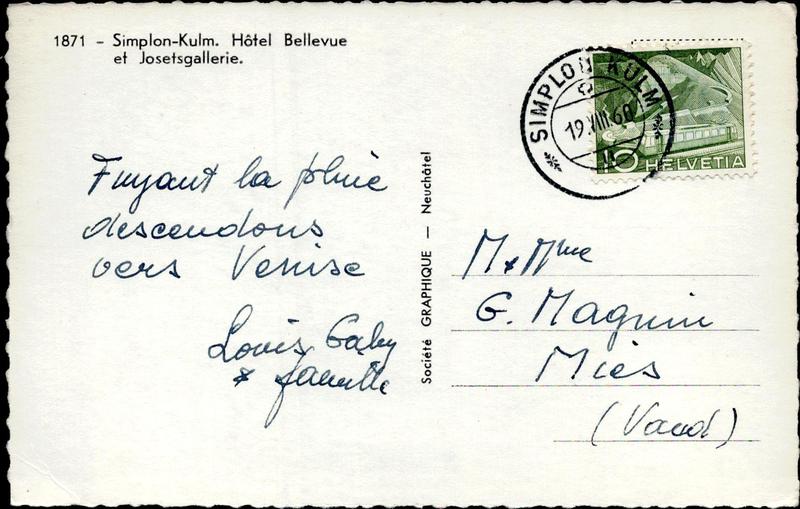 1871 – Simplon-Kulm. Hôtel Bellevue
et Josetsgallerie.
Fuyant la pluie
descendons
vers Venise
Louis Gaby
& famille
Société GRAPHIQUE — Neuchâtel
SIMPLON KULM
10 HELVETIA
M & Mme
G. Magnin
Mies
(Vaud)